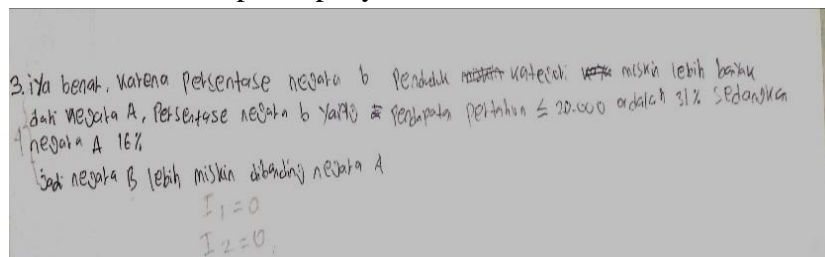 3. iya benar, karena Persentase negara b Penduduk kategori miskin lebih banyak
dari negara A, Persentase negara b yaitu Pendapatan pertahun ≤ 20.000 adalah 31% sedangkan
negara A 16%
Jadi negara B lebih miskin dibanding negara A
I1 = 0
I2 = 0